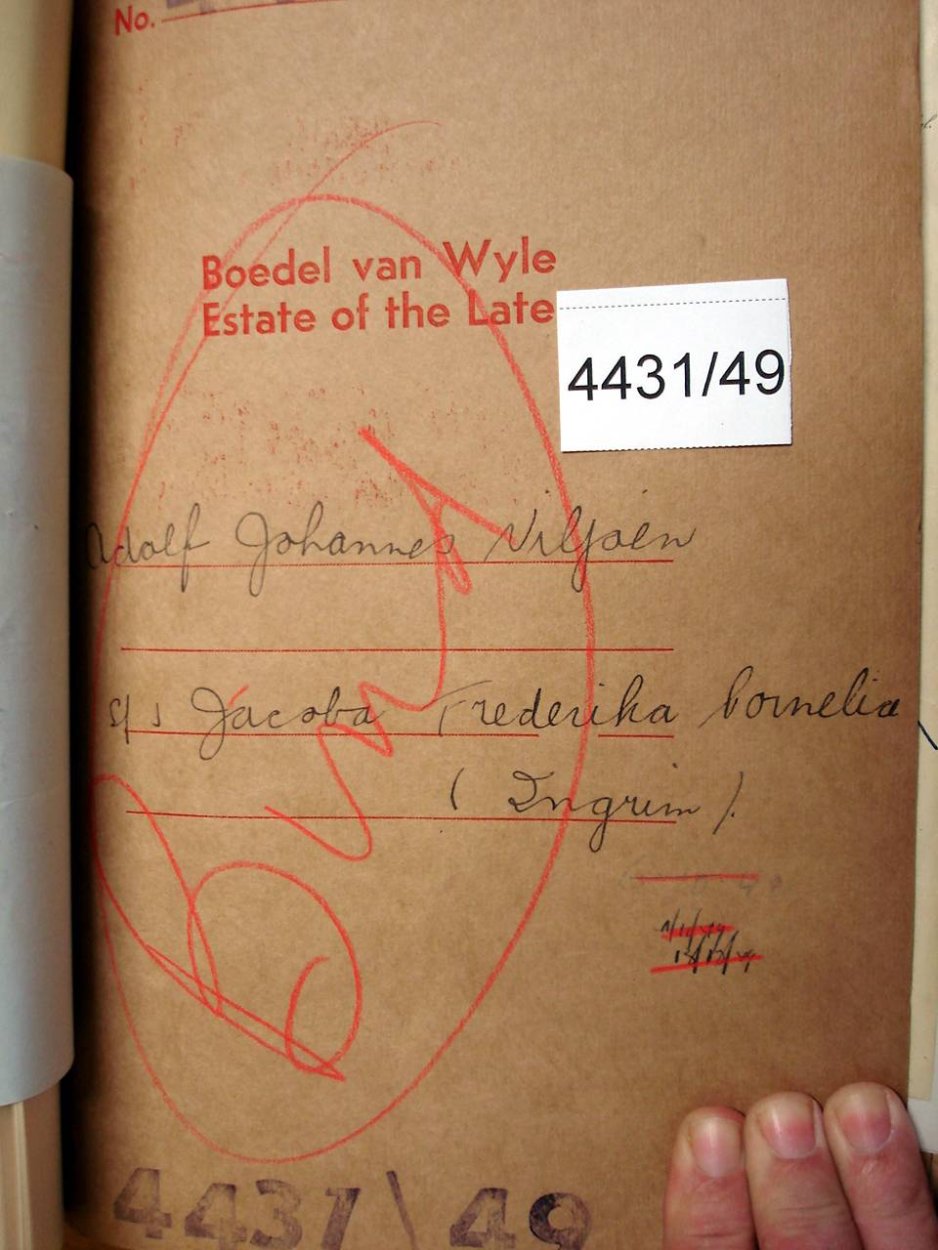 No.
Boedel van Wyle
Estate of the Late
4431/49
Adolf Johannes Viljoen
s/s Jacoba Frederika Cornelia
( Ingrim ).
4431\49